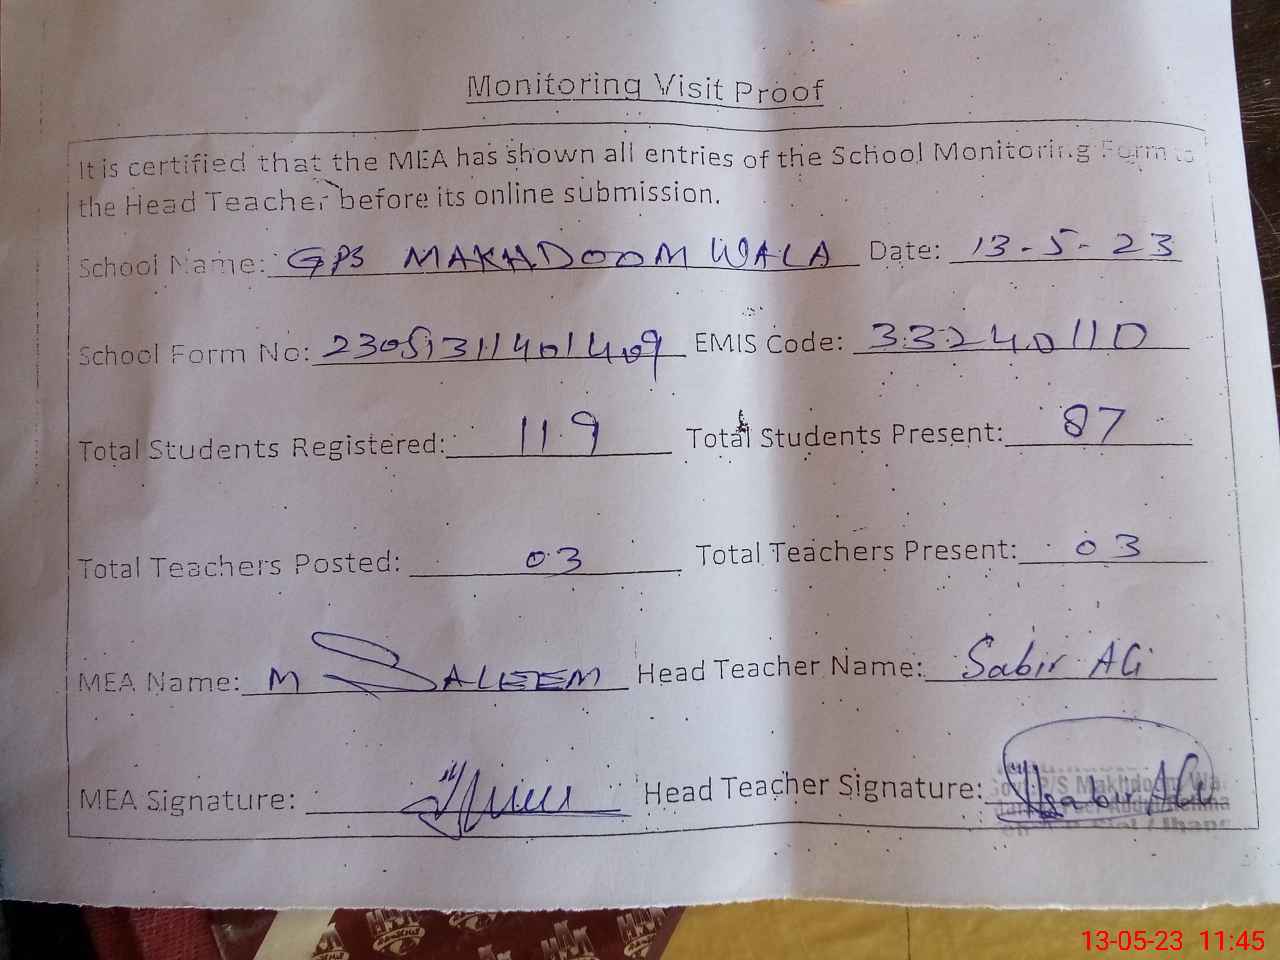 Monitoring Visit Proof
It is certified that the MEA has shown all entries of the School Monitoring Form to
the Head Teacher before its online submission.
School Name: GPS MAKHDOOM WALA Date: 13-5-23
School Form No: 23051311401409 EMIS Code: 33240110
Total Students Registered: 119 Total Students Present: 87
Total Teachers Posted: 03 Total Teachers Present: 03
MEA Name: M SALEEM Head Teacher Name: Sabir Ali
MEA Signature: Head Teacher Signature: Sabir Ali
P/S Makhdoom Wa
13-05-23 11:45